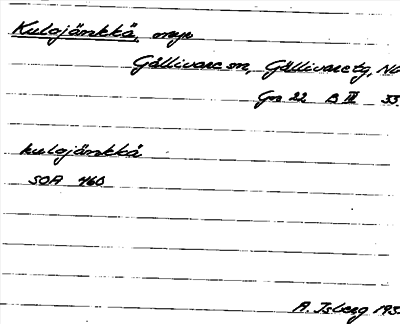 Kulojänkkä, myr
Gällivare sn, Gällivare tg, Nb
Gn 22 B III 33
kulojänkkä
SOA 460
A. Isberg 193